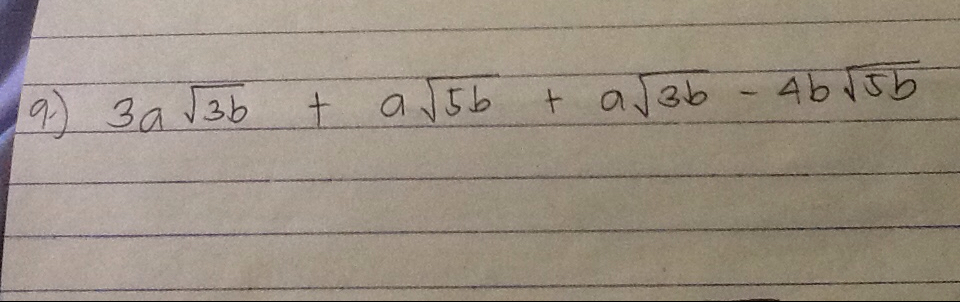 9.) 3a√3b + a√5b + a√3b - 4b√5b